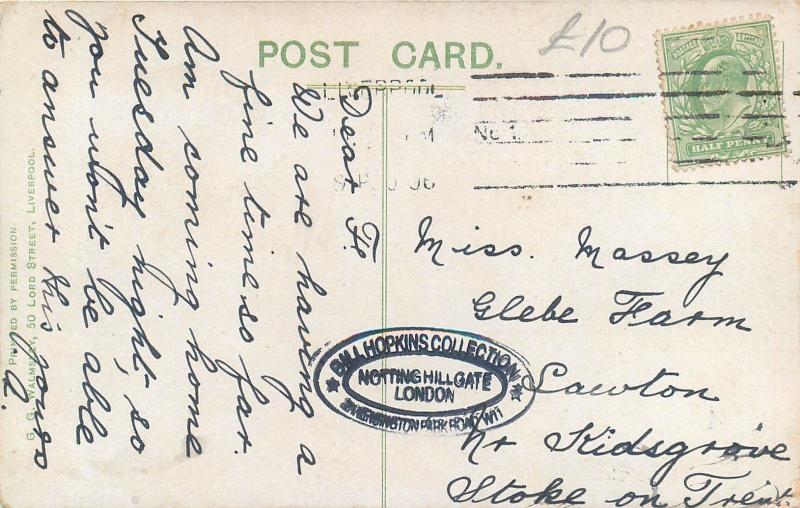 POST CARD.
£10
LIVERPOOL
No 1
06
HALF PENNY
Dear
We are having a
fine time so far.
Am coming home
Tuesday night, so
you won't be able
to answer this yours
Miss. Massey
Glebe Farm
Lawton
Nr Kidsgrove
Stoke on Trent
BILL HOPKINS COLLECTION
NOTTING HILL GATE
LONDON
KENSINGTON PARK ROAD W11
PRINTED BY PERMISSION.
G. G. WALMSLEY, 50 LORD STREET, LIVERPOOL.